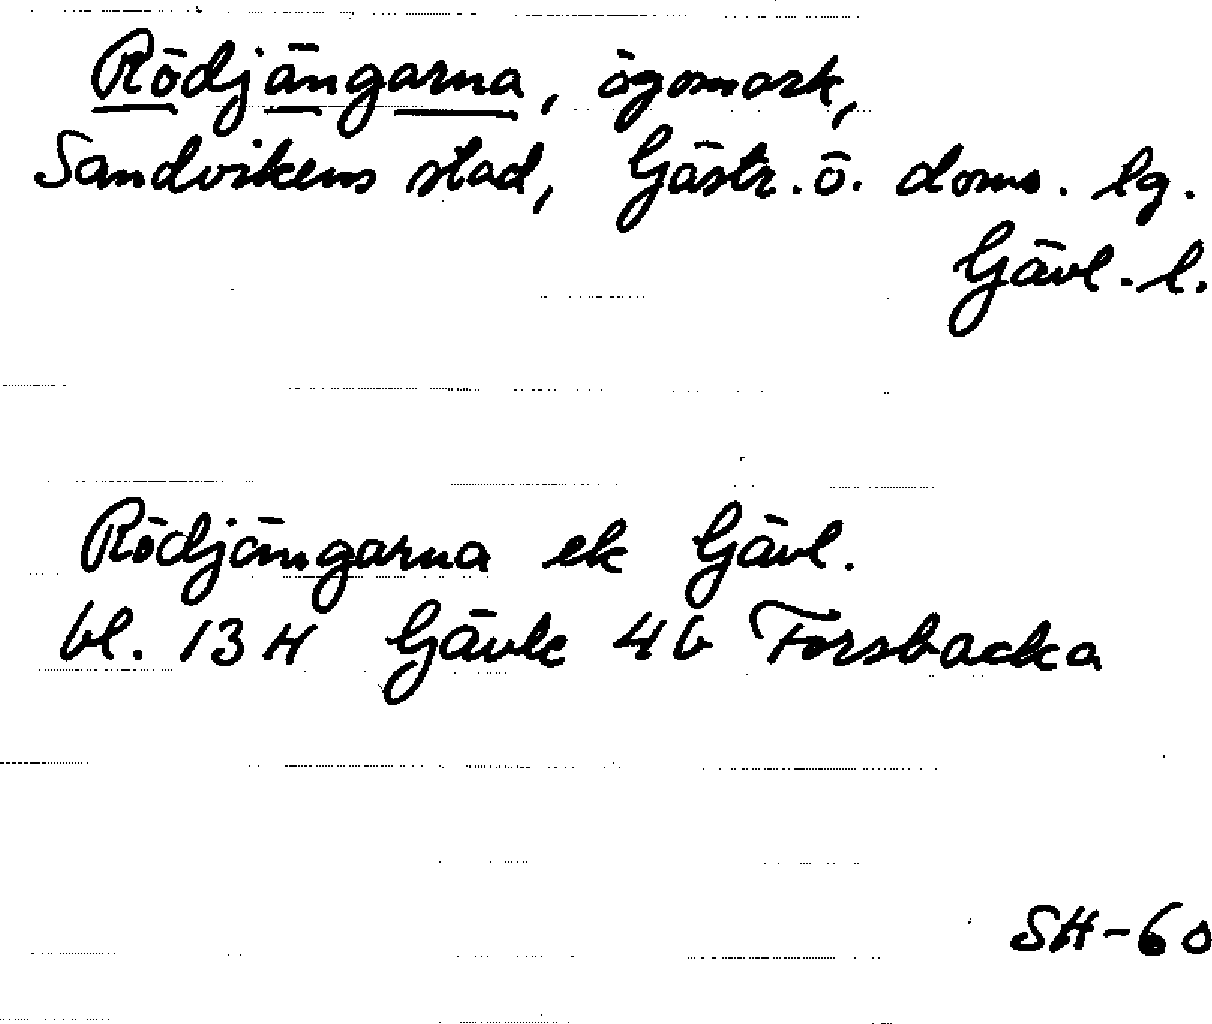 Rödjängarna, ägomark,
Sandvikens stad, Gästr. ö. doms. lg.
Gävl. l.
Rödjängarna ek Gävl.
bl. 134 Gävle 4b Forsbacka
SH-60